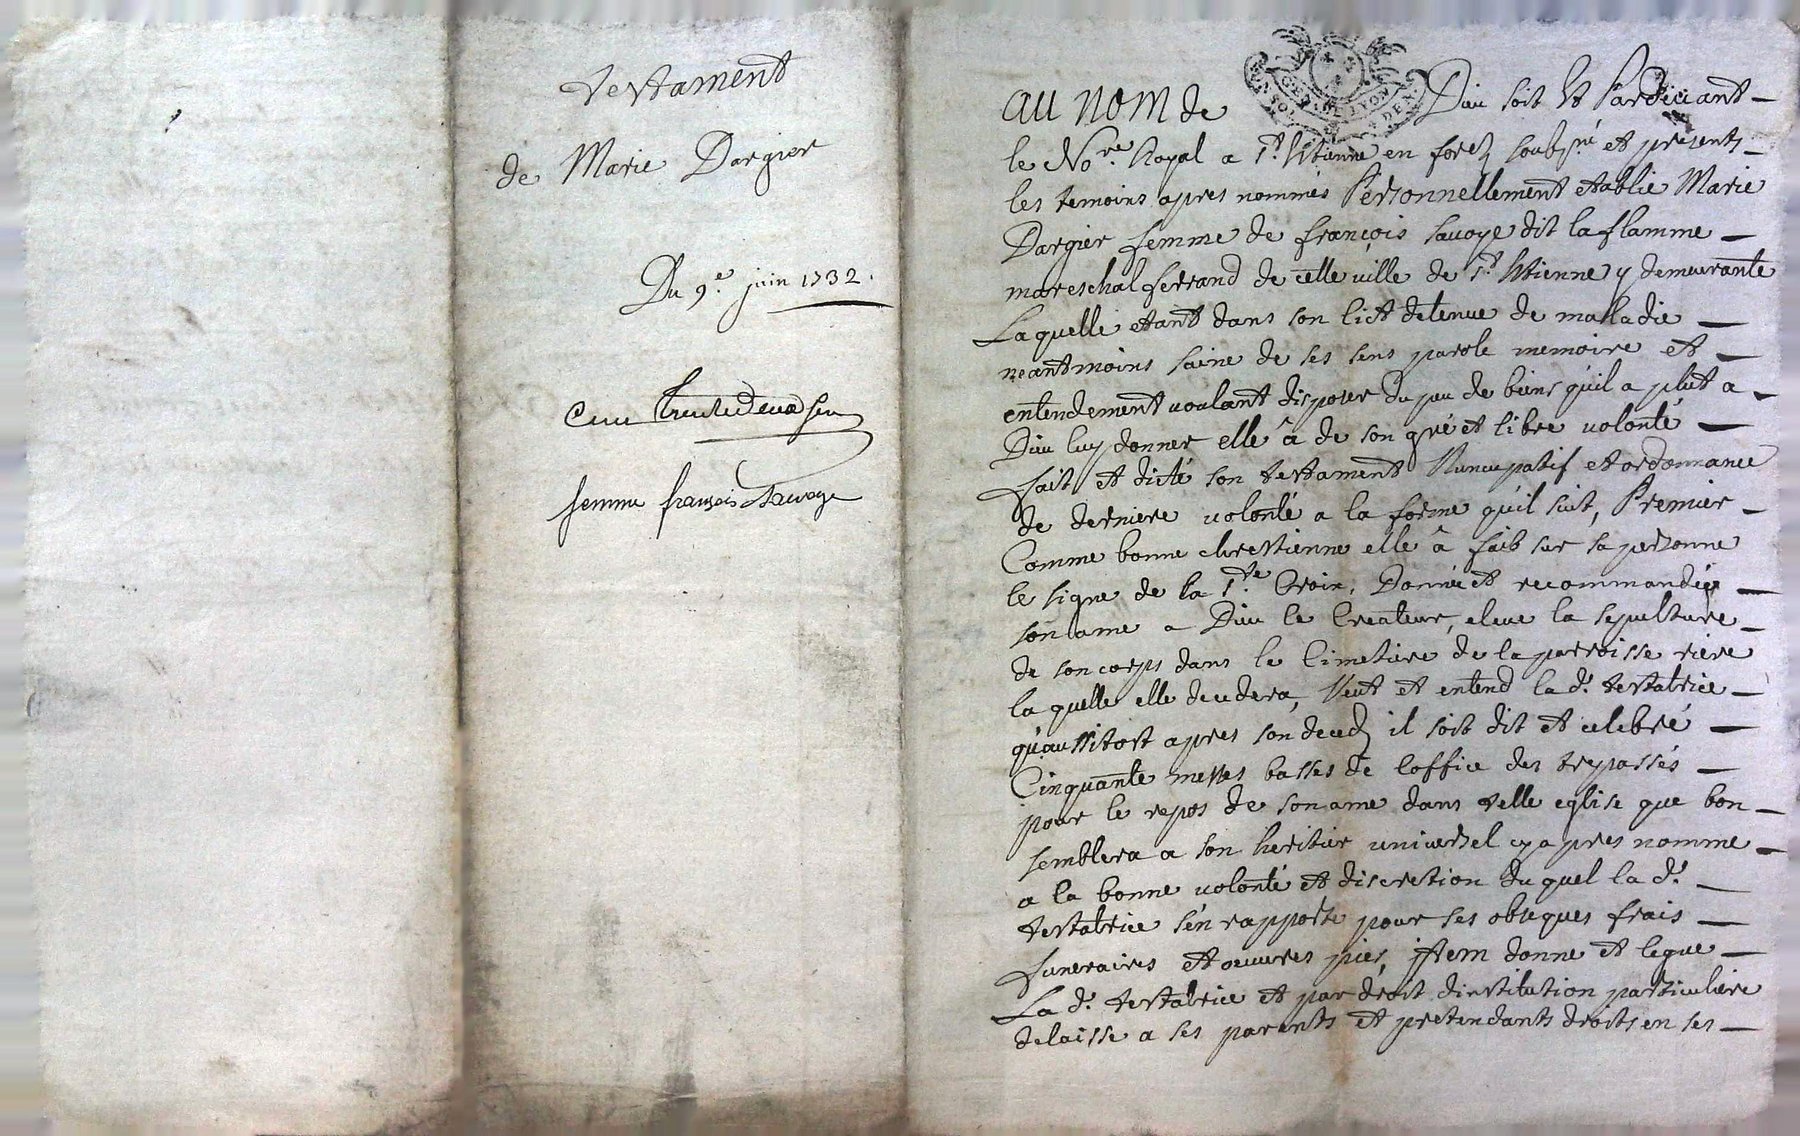 Testament
de Marie Dargier
Du 9.e juin 1732.
femme françois Sauvoye
au nom de Dieu soit Et Pardevant
le No.re Royal a S.t Etienne en forez soubs.né et presents
les temoins apres nommés Personnellement etablie Marie
Dargier femme de françois sauoye dit la flamme
mareschal ferrand de cette ville de S.t Etienne y demeurante
Laquelle etant dans son lict detenue de malladie
neantmoins saine de ses sens parole memoire et
entendement voulant disposer du peu de biens qu'il a plut a
Dieu luy donner elle â de son gré et libre volonté
fait et dicté son testament Nuncupatif et ordonnance
de derniere volonté a la forme qu'il suit, Premier
Comme bonne chrestienne elle â fait sur sa personne
le signe de la S.te Croix, Donné et recommandée
son ame a Dieu le Createur, eleue la sepulture
de son corps dans le Cimetiere de la parroisse riere
la quelle elle decedera, Veut et entend la d.e testatrice
qu'aussitost apres son decedz il soit dit et celebré
Cinquante messes basses de l'office des trepassés
pour le repos de son ame dans telle eglise que bon
semblera a son heritier universel cy apres nommé
a la bonne volonté et discretion du quel la d.e
testatrice s'en rapporte pour ses obseques frais
funeraires et oeuvres pies, jtem donne et legue
La d.e testatrice et par droit d'institution particuliere
delaisse a ses parents et pretendants droits en ses